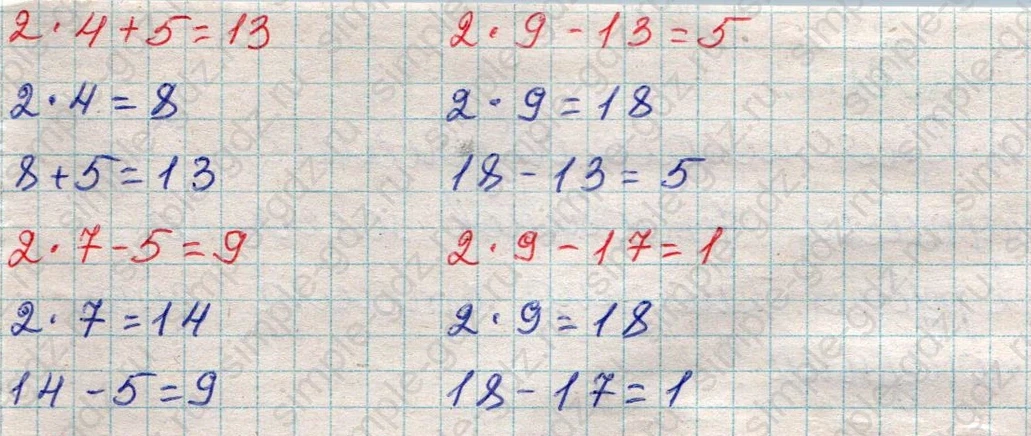 2·4+5=13
2·4=8
8+5=13
2·9-13=5
2·9=18
18-13=5
2·7-5=9
2·7=14
14-5=9
2·9-17=1
2·9=18
18-17=1
simple-gdz.ru